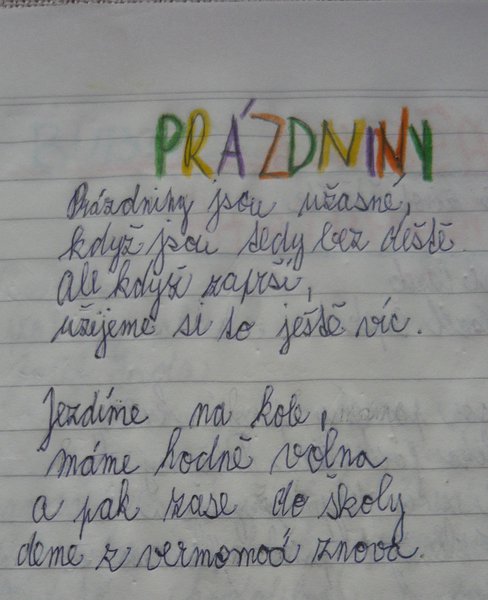 PRÁZDNINY
Prázdniny jsou úžasné,
když jsou tedy bez deště.
Ale když zaprší,
užijeme si to ještě víc.
Jezdíme na kole,
máme hodně volna
a pak zase do školy
deme z vermomoá znova.